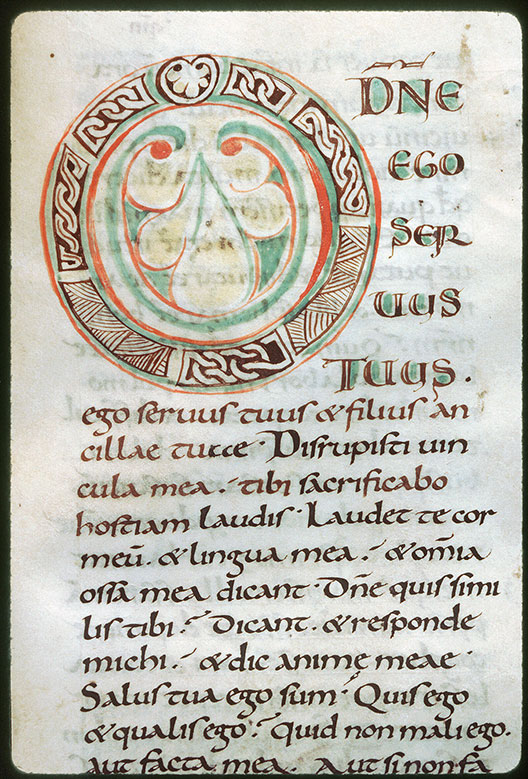 O
DÑE
EGO
SER
UUS
TUUS.
ego seruus tuus & filius an
cillae tuae · Disrupisti uin
cula mea · tibi sacrificabo
hostiam laudis · Laudet te cor
meū. & lingua mea. & om̄ia
ossa mea dicant · Dñe quis simi
lis tibi. Dicant. & responde
michi. & dic anime meae ·
Salus tua ego sum · Quis ego
& qualis ego. Quid non mali ego.
aut facta mea. Aut si non fa